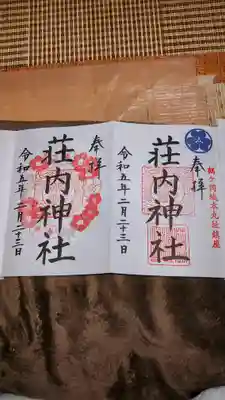 奉拝
荘内神社
令和五年二月二十三日
鶴ヶ岡城本丸址鎮座
奉拝
荘内神社
令和五年二月二十三日